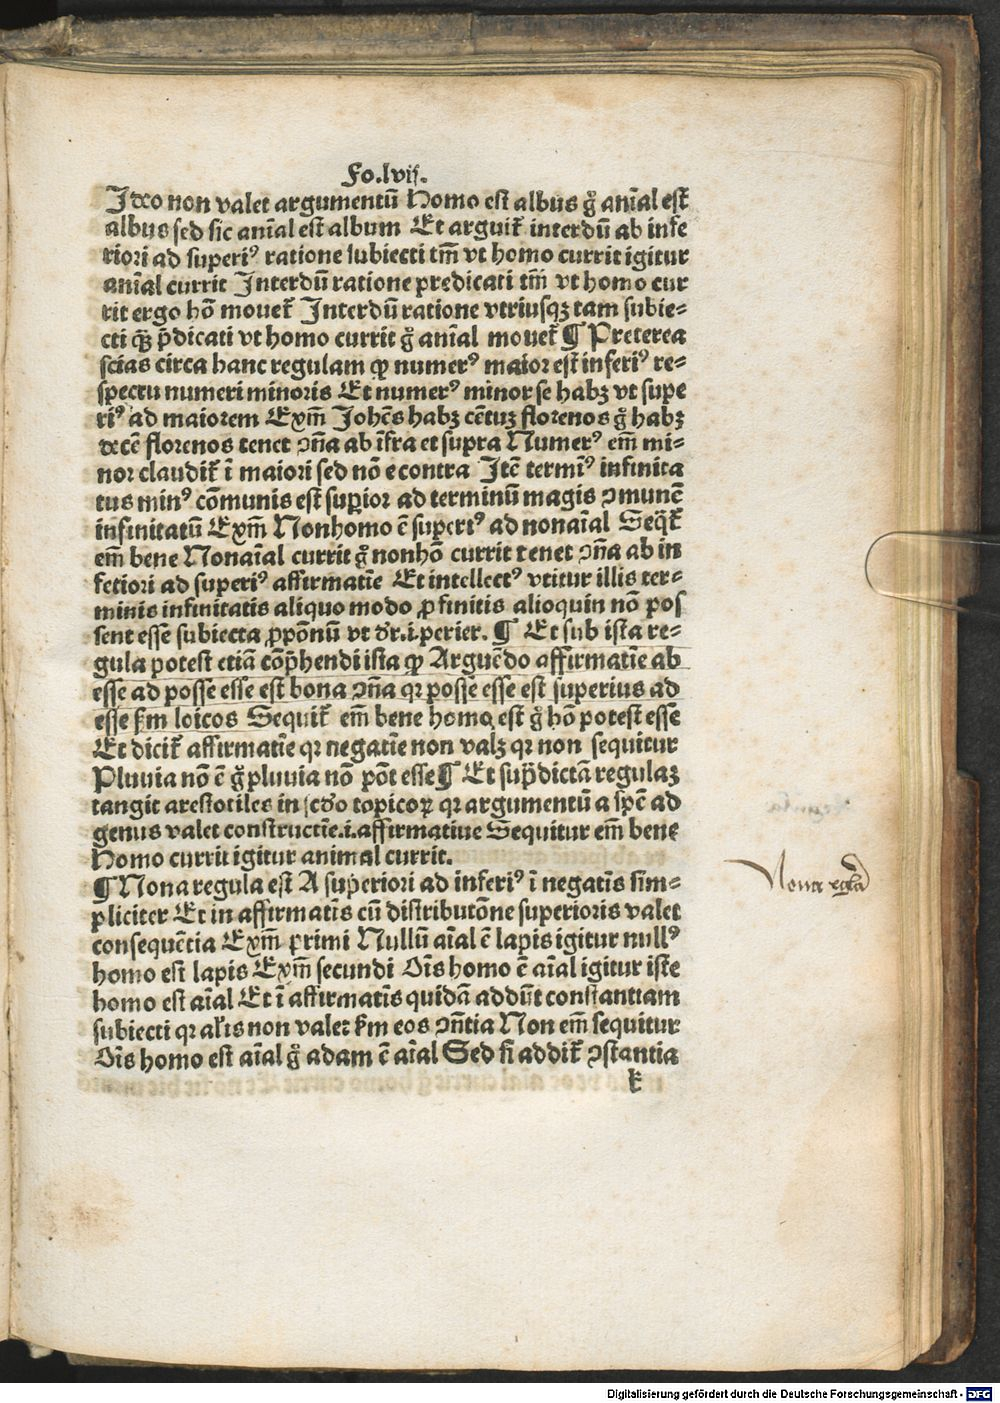 Fo.lvij.
Ideo non valet argumentū Homo est albus gͦ anīal est
albus sed sic anīal est album Et arguit᷑ interdū ab infe
riori ad superiꝰ ratione subiecti tm̄ vt homo currit igitur
anīal currit Interdū ratione predicati tm̄ vt homo cur
rit ergo hō mouet᷑ Interdū ratione vtriusqꝫ tam subie⸗
cti qꝫ̄ p̄dicati vt homo currit gͦ anīal mouet᷑ ¶ Preterea
scias circa hanc regulam ꝙ numerꝰ maior est inferiꝰ re⸗
spectu numeri minoris Et numerꝰ minor se habꝫ vt supe
riꝰ ad maiorem Exm̄ Johēs habꝫ cētuꝫ florenos gͦ habꝫ
decē florenos tenet ↄn̄a ab īfra et supra Numerꝰ em̄ mi⸗
nor claudit᷑ ī maiori sed nō econtra Itē termīꝰ infinita
tus minꝰ cōmunis est suꝑior ad terminū magis ↄmunē
infinitatū Exm̄ Nonhomo ē superiꝰ ad nonaīal Seqͥt᷑
em̄ bene Nonaīal currit gͦ nonhō currit tenet ↄn̄a ab in
feriori ad superiꝰ affirmatīe Et intellectꝰ vtitur illis ter⸗
minis infinitatis aliquo modo ꝓ finitis alioquin nō pos
sent esse subiecta ꝓpōnū vt dr̄.i.perier. ¶ Et sub ista re⸗
gula potest etiā cōp̄hendi ista ꝙ Arguēdo affirmatīe ab
esse ad posse esse est bona ↄn̄a qꝛ posse esse est superius ad
esse ẜm loicos Sequit᷑ em̄ bene homo est gͦ hō potest esse
Et dicit᷑ affirmatīe qꝛ negatīe non valꝫ qꝛ non sequitur
Pluuia nō ē gͦ pluuia nō pōt esse ¶ Et sup̄dictā regulaꝫ
tangit arestotiles in scd̄o topicoꝝ qꝛ argumentū a spē ad
genus valet constructīe.i.affirmatiue Sequitur em̄ bene
Homo currit igitur animal currit.
¶ Nona regula est A superiori ad inferiꝰ ī negatīs sim⸗
pliciter Et in affirmatīs cū distributōne superioris valet
consequētia Exm̄ primi Nullū aīal ē lapis igitur nullꝰ
homo est lapis Exm̄ secundi Oīs homo ē aīal igitur iste
homo est aīal Et ī affirmatīs quidā addūt constantiam
subiecti qꝛ al̓is non valet ẜm eos ↄn̄tia Non em̄ sequitur
Oīs homo est aīal gͦ adam ē aīal Sed si addit᷑ ↄstantia
k
Nona regula
Digitalisierung gefördert durch die Deutsche Forschungsgemeinschaft - DFG